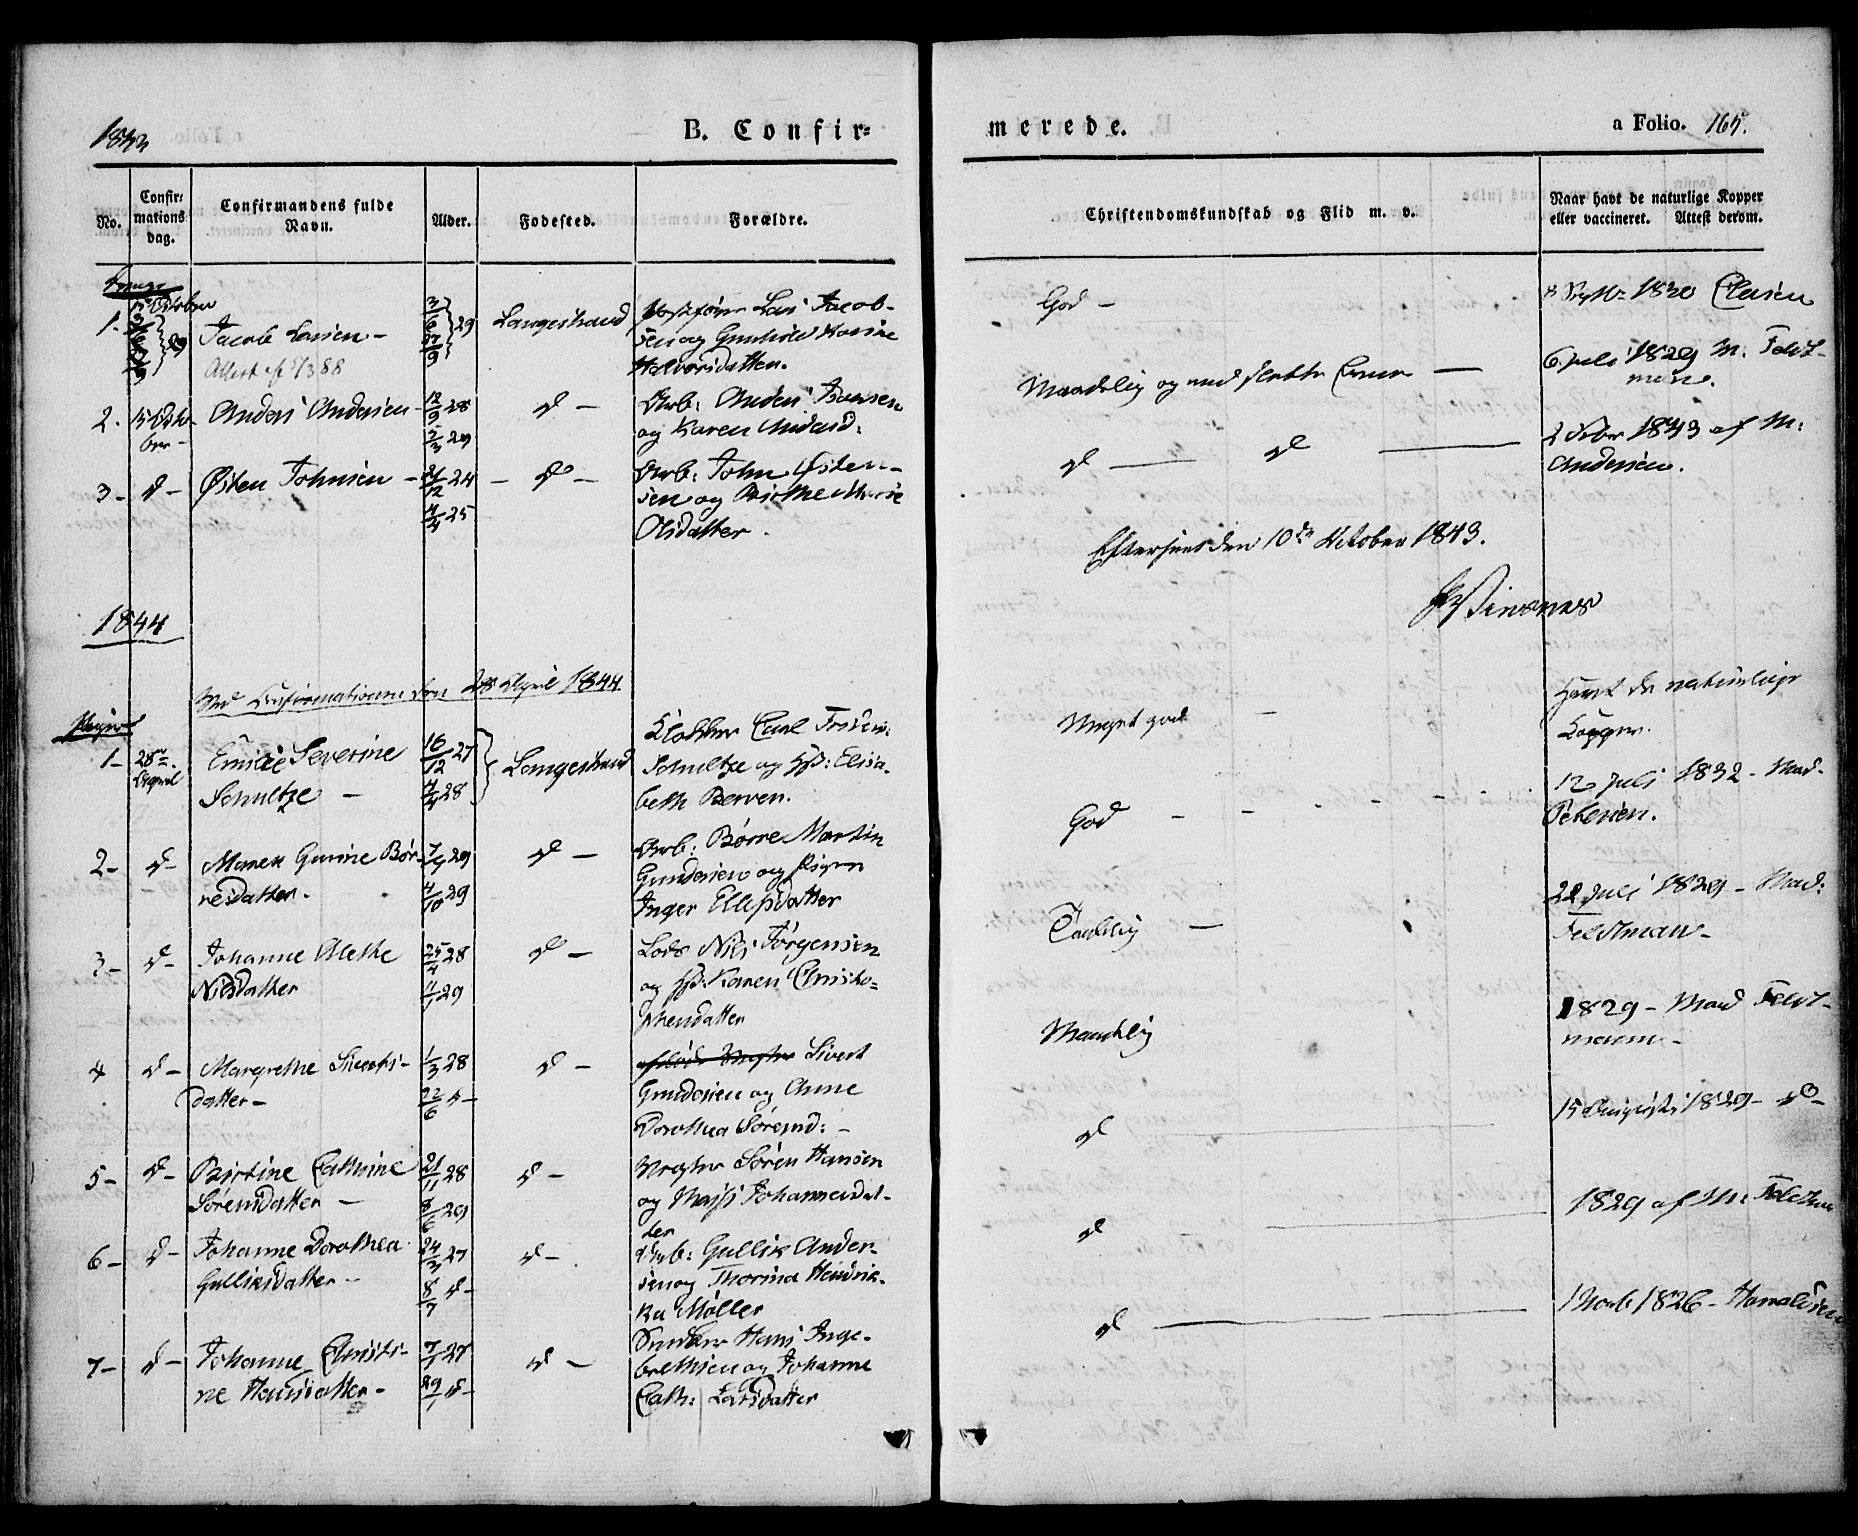 1843
B. Confir=
merede.
a Folio. 165.
No.
Confir:
mations
dag.
Confirmandens fulde
Navn.
Alder.
Fødested.
Forældre.
Christendomskundskab og Flid m. v.
Naar havt de naturlige Kopper
eller vaccineret. Attest derom.
Drenge
1-
15 October
Jacob Larsen -
3/6 27/9 29
Langesund
Lars Jacob-
sen og Gunhild Karine
Halvorsdatter.
God -
1830 Clasen
Attest 88
2.
15 Octo-
ber -
Anders Andersen -
12/9 28
5/3 29
d -
Arb: Anders Hansen
og Karen Andersd:
Maadelig og med slette Evner -
6 Juli 1829 M. Feldt-
mann.
3-
d -
Østen Johnsen -
21/12 24
4/4 25
- d -
Arb: John Østen-
sen og Birthe Marie
Olsdatter.
d - d -
2 Febr 1843 af M:
Andersen.
Efterseet den 10de October 1843.
1844
Ved Confirmationen den 28 April 1844
Piger
1-
28de
April
Emilie Severine
Schultze -
16/12 27
4/4 28
Langesund
Klokker Carl
Schultze og Elisa-
beth Berven.
Meget god -
Havt de naturlige
Kopper.
2-
d-
Maren Gurine Bør-
resdatter -
7/4 29
4/10 29
d -
Arb: Børre Martin
Gundersen og Pigen
Inger Ellefsdatter
God - -
12 Juli 1832 - Mad.
Petersen.
3-
d-
Johanne Alethe
Nielsdatter
25/4 28
11/1 29
d -
Lods Niels Jørgensen
og Karen Christo=
phersdatter
Taalelig -
22 Juli 1829 - Mad:
Feldtman -
4
d -
Margrethe Siverts-
datter -
1/3 28
22/6 d -
d -
Sivert
Gundersen og Anne
Dorothea Sørensd: -
Maadelig
1829 - Mad Feldt-
mann -
5-
d -
Birtine Cathrine
Sørensdatter -
21/11 28
8/6 29
d -
Søren Hansen
og Johannesdat-
ter
d -
15 Augusti 1829 - do -
6-
d-
Johanne Dorothea
Gulliksdatter -
24/3 27
8/7 d -
d -
Arb: Gullik Ander-
sen og Thorina Hendrik-
ka Møller
d -
1829 af M: Feldtman
7-
d -
Johanne Christi-
ne Hansdatter -
7/1 27
29/1 d -
d -
Hans Inge-
brethsen og Johanne
Cath: Larsdatter
d -
1826 -